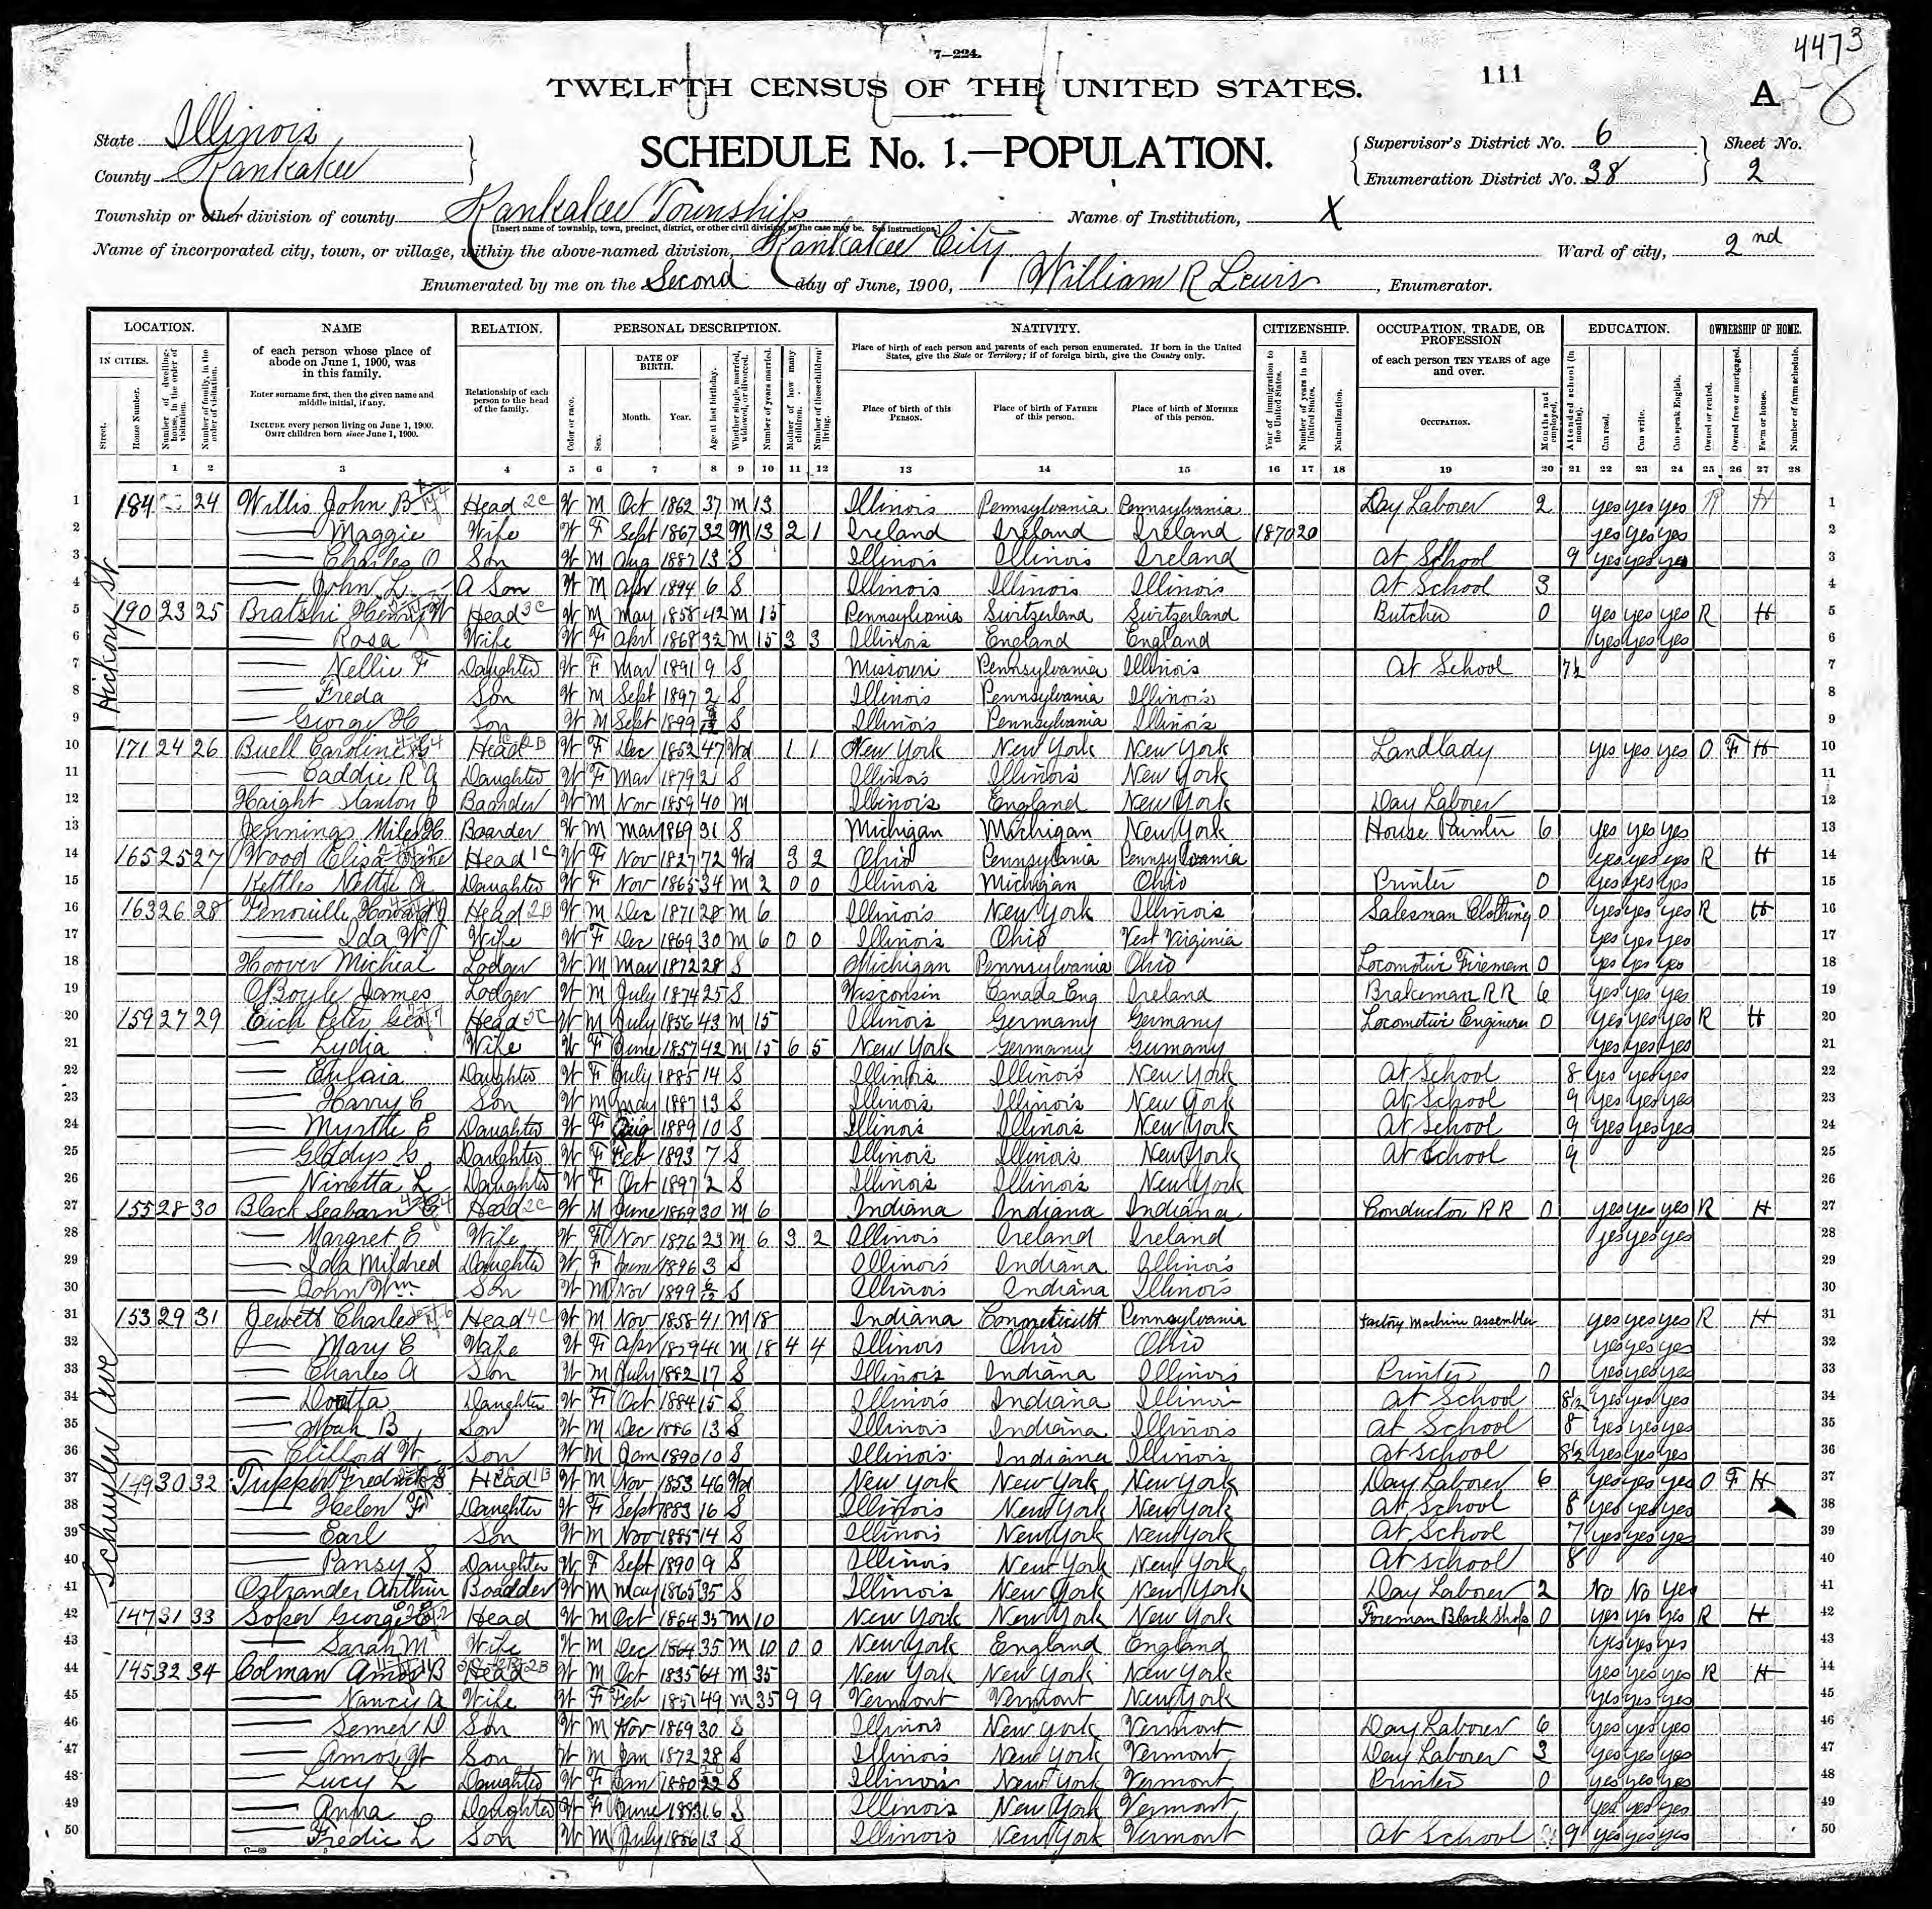 4473
7—224.
111
TWELFTH CENSUS OF THE UNITED STATES.
A
8
State Illinois
County Kankakee
SCHEDULE No. 1.—POPULATION.
Supervisor's District No. 6
Enumeration District No. 38
Sheet No.
2
Township or other division of county Kankakee Township
[Insert name of township, town, precinct, district, or other civil division, as the case may be. See instructions.]
Name of Institution, X
Name of incorporated city, town, or village, within the above-named division, Kankakee City
Ward of city, 2nd
Enumerated by me on the Second day of June, 1900, William R Lewis, Enumerator.
LOCATION. NAME RELATION. PERSONAL DESCRIPTION. NATIVITY. CITIZENSHIP. OCCUPATION, TRADE, OR PROFESSION EDUCATION. OWNERSHIP OF HOME.
IN CITIES.
Street.
House Number.
Number of dwelling-house, in the order of visitation.
Number of family, in the order of visitation.
of each person whose place of abode on June 1, 1900, was in this family.
Enter surname first, then the given name and middle initial, if any.
INCLUDE every person living on June 1, 1900.
OMIT children born since June 1, 1900.
Relationship of each person to the head of the family.
Color or race.
Sex.
DATE OF BIRTH.
Month. Year.
Age at last birthday.
Whether single, married, widowed, or divorced.
Number of years married.
Mother of how many children.
Number of these children living.
Place of birth of each person and parents of each person enumerated. If born in the United States, give the State or Territory; if of foreign birth, give the Country only.
Place of birth of this PERSON.
Place of birth of FATHER of this person.
Place of birth of MOTHER of this person.
Year of immigration to the United States.
Number of years in the United States.
Naturalization.
of each person TEN YEARS of age and over.
OCCUPATION.
Months not employed.
Attended school (in months).
Can read.
Can write.
Can speak English.
Owned or rented.
Owned free or mortgaged.
Farm or house.
Number of farm schedule.
1 2 3 4 5 6 7 8 9 10 11 12 13 14 15 16 17 18 19 20 21 22 23 24 25 26 27 28
Hickory St
Schuyler Ave
1 184 24 Willis John B Head W M Oct 1862 37 M 13 Illinois Pennsylvania Pennsylvania Day Laborer 2 yes yes yes R H 1
2 — Maggie Wife W F Sept 1867 32 M 13 2 1 Ireland Ireland Ireland 1870 20 yes yes yes 2
3 — Charles O Son W M Aug 1887 13 S Illinois Illinois Ireland At School 9 yes yes yes 3
4 — John L A Son W M Apr 1894 6 S Illinois Illinois Illinois At School 3 4
5 190 23 25 Bratshi Henry W Head W M May 1858 42 M 15 Pennsylvania Switzerland Switzerland Butcher 0 yes yes yes R H 5
6 — Rosa Wife W F Apr 1868 32 M 15 3 3 Illinois England England yes yes yes 6
7 — Nellie F Daughter W F Mar 1891 9 S Missouri Pennsylvania Illinois At School 7½ 7
8 — Freda Son W M Sept 1897 2 S Illinois Pennsylvania Illinois 8
9 — George H Son W M Sept 1899 S Illinois Pennsylvania Illinois 9
10 171 24 26 Buell Caroline G Head W F Dec 1852 47 Wd 1 1 New York New York New York Landlady yes yes yes O F H 10
11 — Caddie R A Daughter W F Mar 1879 21 S Illinois Illinois New York 11
12 Haight Stanton J Boarder W M Nov 1859 40 M Illinois England New York Day Laborer 12
13 Jennings Miles H Boarder W M Mar 1869 31 S Michigan Michigan New York House Painter 6 yes yes yes 13
14 165 25 27 Wood Eliza Head W F Nov 1827 72 Wd 3 2 Ohio Pennsylvania Pennsylvania yes yes yes R H 14
15 Kettles Nettie A Daughter W F Nov 1865 34 M 2 0 0 Illinois Michigan Ohio Printer 0 yes yes yes 15
16 163 26 28 Fenouille Howard J Head W M Dec 1871 28 M 6 Illinois New York Illinois Salesman Clothing 0 yes yes yes R H 16
17 — Ida W J Wife W F Dec 1869 30 M 6 0 0 Illinois Ohio West Virginia yes yes yes 17
18 Hoover Micheal Lodger W M Mar 1872 28 S Michigan Pennsylvania Ohio Locomotive Fireman 0 yes yes yes 18
19 OBoyle James Lodger W M July 1874 25 S Wisconsin Canada Eng Ireland Brakeman RR 6 yes yes yes 19
20 159 27 29 Eich Peter Geo Head W M July 1856 43 M 15 Illinois Germany Germany Locomotive Engineer 0 yes yes yes R H 20
21 — Lydia Wife W F June 1857 42 M 15 6 5 New York Germany Germany yes yes yes 21
22 — Eulaia Daughter W F July 1885 14 S Illinois Illinois New York At School 8 yes yes yes 22
23 — Harry C Son W M May 1887 13 S Illinois Illinois New York At School 9 yes yes yes 23
24 — Myrtle E Daughter W F Aug 1889 10 S Illinois Illinois New York At School 9 yes yes yes 24
25 — Gladys G Daughter W F Feb 1893 7 S Illinois Illinois New York At School 9 25
26 — Ninetta L Daughter W F Oct 1897 2 S Illinois Illinois New York 26
27 155 28 30 Black Seaborn E Head W M June 1869 30 M 6 Indiana Indiana Indiana Conductor RR 0 yes yes yes R H 27
28 — Margret E Wife W F Nov 1876 23 M 6 3 2 Illinois Ireland Ireland yes yes yes 28
29 — Ida Mildred Daughter W F June 1896 3 S Illinois Indiana Illinois 29
30 — John Wm Son W M Nov 1899 6/12 S Illinois Indiana Illinois 30
31 153 29 31 Jewett Charles Head W M Nov 1858 41 M 18 Indiana Connecticutt Pennsylvania Factory Machine Assembler yes yes yes R H 31
32 — Mary E Wife W F Apr 1859 41 M 18 4 4 Illinois Ohio Ohio yes yes yes 32
33 — Charles A Son W M July 1882 17 S Illinois Indiana Illinois Printer 0 yes yes yes 33
34 — Daughter W F Oct 1884 15 S Illinois Indiana Illinois At School 8½ yes yes yes 34
35 — Noah B Son W M Dec 1886 13 S Illinois Indiana Illinois At School 8 yes yes yes 35
36 — Clifford W Son W M Jan 1890 10 S Illinois Indiana Illinois At School 8½ yes yes yes 36
37 149 30 32 Tupper Fredrick S Head W M Nov 1853 46 Wd New York New York New York Day Laborer 6 yes yes yes O F H 37
38 — Helen F Daughter W F Sept 1883 16 S Illinois New York New York At School 8 yes yes yes 38
39 — Earl Son W M Nov 1885 14 S Illinois New York New York At School 7 yes yes yes 39
40 — Pansy S Daughter W F Sept 1890 9 S Illinois New York New York At School 8 40
41 Ostrander Arthur Boarder W M May 1865 35 S Illinois New York New York Day Laborer 2 No No yes 41
42 147 31 33 Soper George Head W M Oct 1864 35 M 10 New York New York New York Foreman Black Shop 0 yes yes yes R H 42
43 — Sarah M Wife W M Dec 1864 35 M 10 0 0 New York England England yes yes yes 43
44 145 32 34 Colman Amos B Head W M Oct 1835 64 M 35 New York New York New York yes yes yes R H 44
45 — Nancy A Wife W F Feb 1851 49 M 35 9 9 Vermont Vermont New York yes yes yes 45
46 — Semer D Son W M Nov 1869 30 S Illinois New York Vermont Day Laborer 6 yes yes yes 46
47 — Amos W Son W M Jan 1872 28 S Illinois New York Vermont Day Laborer 3 yes yes yes 47
48 — Lucy L Daughter W F Jan 1880 22 S Illinois New York Vermont Printer 0 yes yes yes 48
49 — Anna Daughter W F June 1883 16 S Illinois New York Vermont yes yes yes 49
50 — Fredic L Son W M July 1886 13 S Illinois New York Vermont At School 9 yes yes yes 50